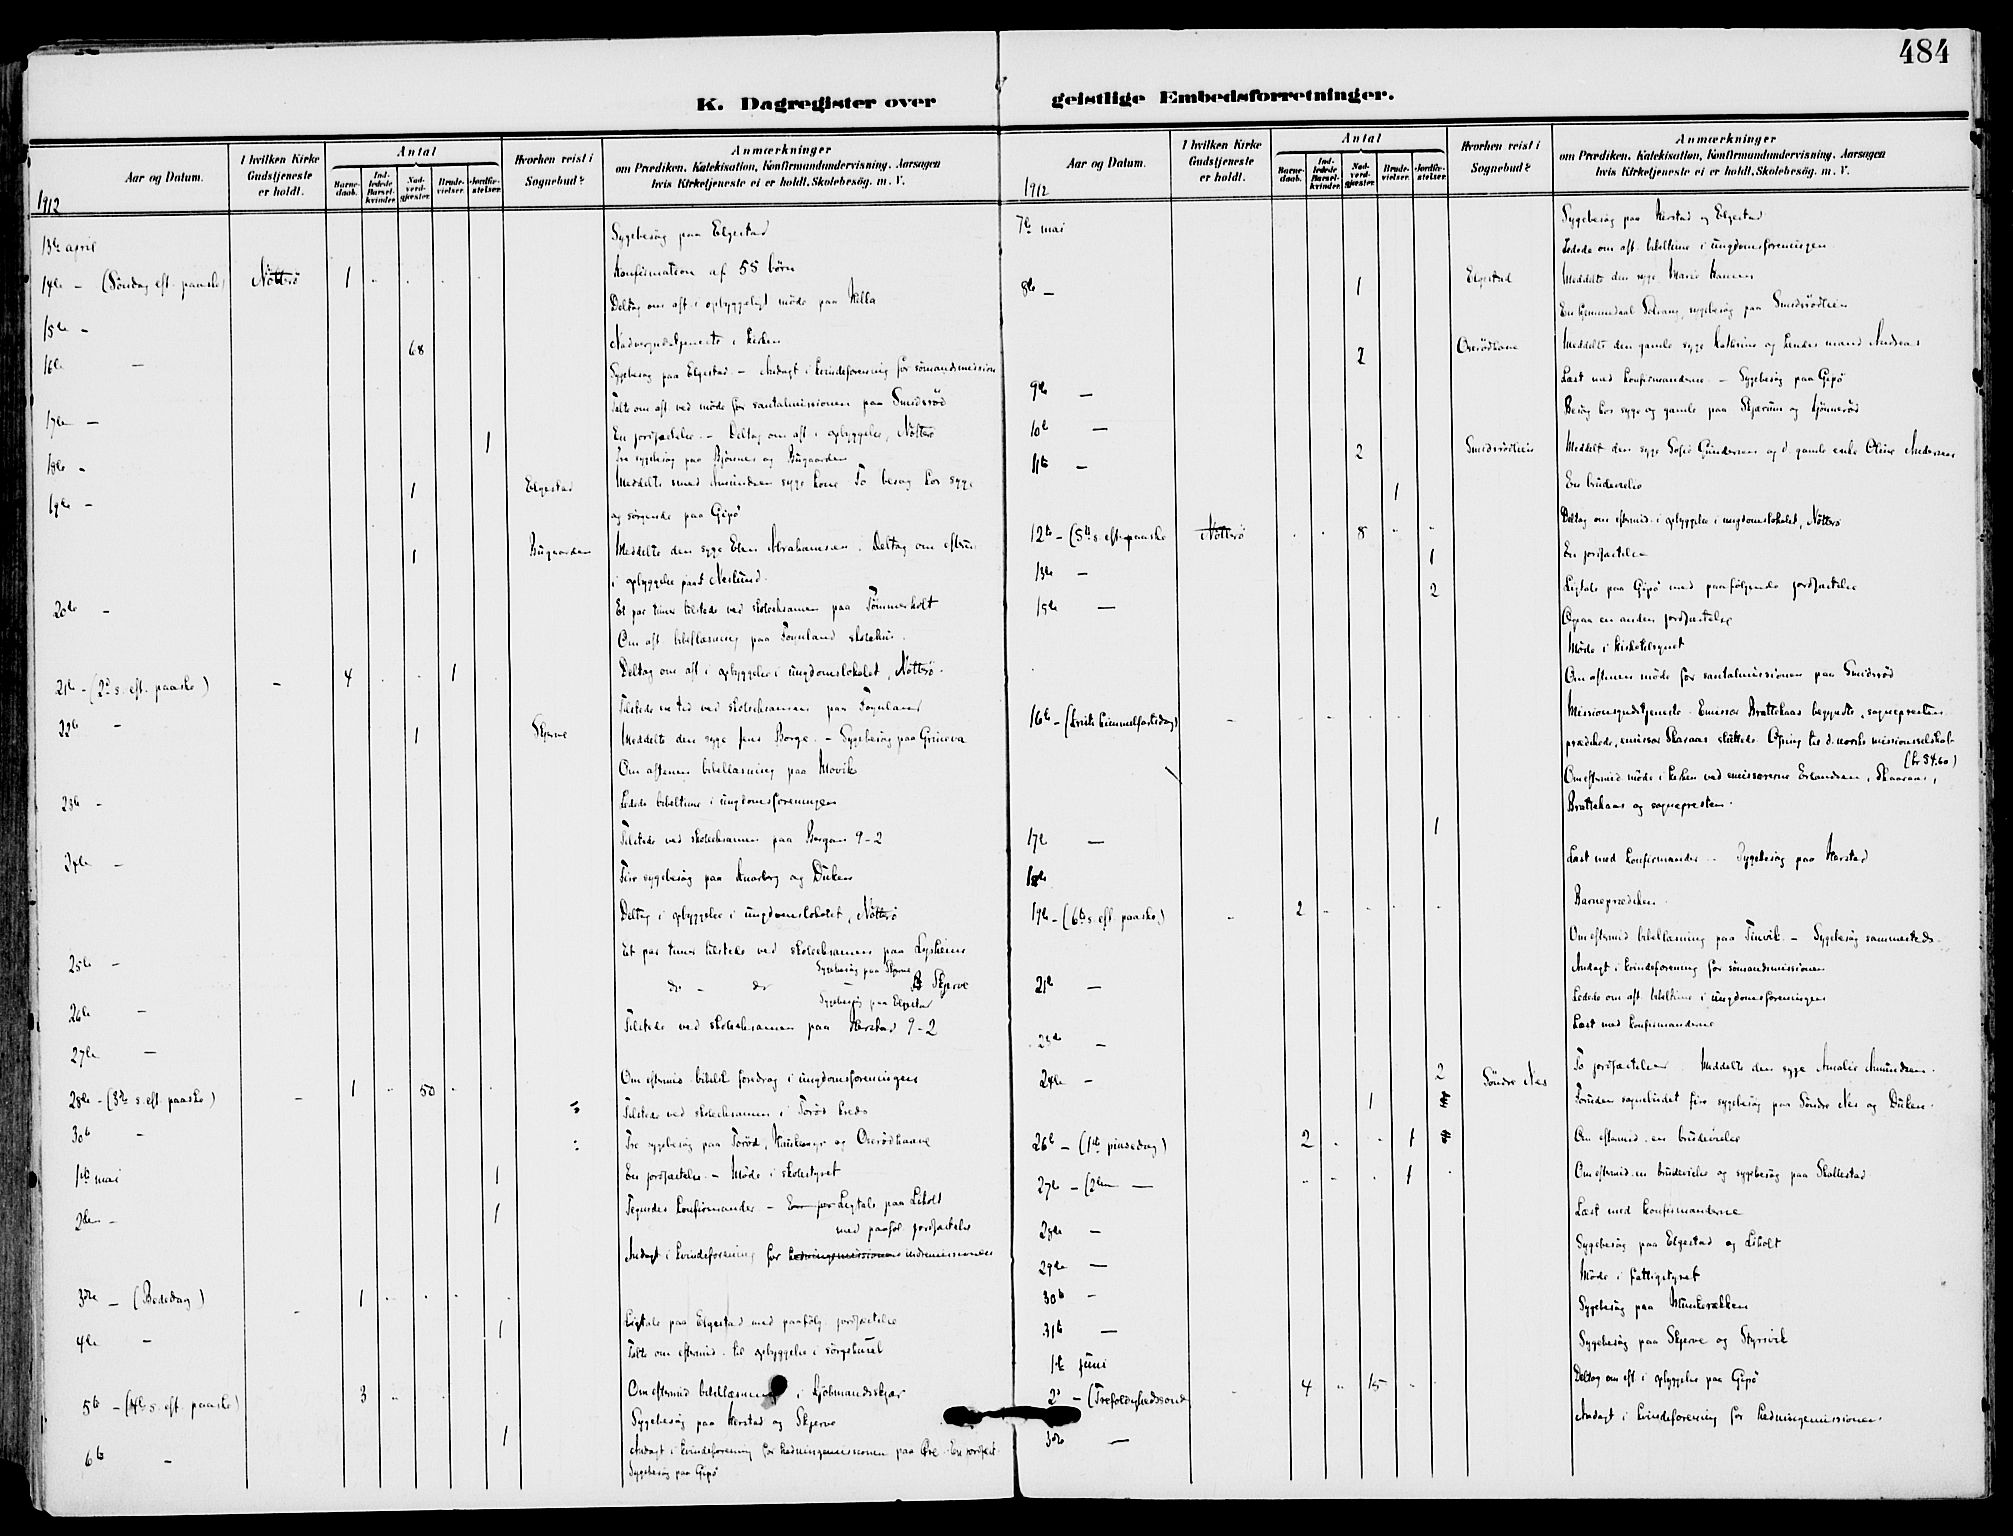 484
K. Dagregister over geistlige Embedsforretninger.
Aar og Datum.
I hvilken Kirke Gudstjeneste er holdt.
Antal
Barnedaab.
Indledede Barselkvinder.
Nadverdgjæster.
Brudevielser.
Jordfæstelser.
Hvorhen reist i Sognebud?
Anmærkninger
om Prædiken, Katekisation, Konfirmandundervisning, Aarsagen
hvis Kirketjeneste ei er holdt, Skolebesøg, m. V.
1912
13de april Sygebesög paa Elgestad
14de – (Söndag eft. paaske) Nötterö 1 Konfirmation af 55 börn
Deltog om aft. i opbyggeligt möde paa Hella
15de – 68 Nadvergudstjeneste i kirken
16de – Sygebesög paa Elgestad. – Andagt i kvindeforening for sömandsmission
Talte om aft. ved möde for santalmissionen paa Smidsröd
17de – 1 En jordfæstelse. – Deltog om aft. i opbyggelse, Nötterö
18de – Tre sygebesög paa Bjönnes og Bugaarden
19de – 1 Elgestad Meddelte smed Amundsen syge kone To besög hos syge
og sörgende paa Gipö
1 Bugaarden Meddelte den syge Elen Abrahamsen. Deltog om efterm.
i opbyggelse paa Neslund.
20de – Et par timer tilstede ved skoleeksamen paa Tömmerholt
Om aft. bibellæsning paa Föynland skolehus.
21de – (2d s. eft. paaske) – 4 1 Deltog om aft. i opbyggelse i ungdomslokalet, Nötterö.
22de – Tilstede en tid ved skoleeksamen paa Föynland
1 Skjerve Meddelte den syge Jens Borge. – Sygebesög paa Grimeva
Om aftenen bibellæsning paa Hovik
23de – Ledede bibeltime i ungdomsforeningen
Tilstede ved skoleeksamen paa Borgen 9–2
24de – Fire sygebesög paa Knarberg og Duken
Deltog i opbyggelse i ungdomslokalet, Nötterö
25de – Et par timer tilstede ved skoleeksamen paa Lysheim
Sygebesög paa Skjerve
26de – do – do Skjerve
Sygebesög paa Elgestad
27de – Tilstede ved skoleeksamen paa Herstad 9–2
28de – (3de s. eft. paaske) – 1 50 Om eftermid. bibelsk foredrag i ungdomsforeningen
Tilstede ved skoleeksamen i Toröd kreds
30te – Tre sygebesög paa Toröd, Haukemyr og Oserödhaave
1ste mai 1 En jordfæstelse. – Möde i skolestyret
2den – 1 Tegnedes konfirmander – En jor Ligtale paa Liholt
med paaföl. jordfæstelse
Andagt i kvindeforening for hedningemissionens indremissionen
3die – (Bededag) – 1
4de – 1 Ligtale paa Elgestad med paafölg. jordfæstelse
Talte om eftermid. til opbyggelse i sörgehuset
5te – (4de s. eft. paaske) 3 Om eftermid bibellæsning i Kjöbmandskjær
Sygebesög paa Herstad og Skjerve
6te – 1 Andagt i kvindeforening for hedningemissionen paa Öre. En jordfæst.
Sygebesög paa Gipö
Aar og Datum.
I hvilken Kirke Gudstjeneste er holdt.
Antal
Barnedaab.
Indledede Barselkvinder.
Nadverdgjæster.
Brudevielser.
Jordfæstelser.
Hvorhen reist i Sognebud?
Anmærkninger
om Prædiken, Katekisation, Konfirmandundervisning, Aarsagen
hvis Kirketjeneste ei er holdt, Skolebesøg, m. V.
1912
7de mai Sygebesög paa Herstad og Elgestad
Ledede om aft. bibeltime i ungdomsforeningen
8de – 1 Elgestad Meddelte den syge Marie Hansen
En hjemmedaab Solvang, sygebesög paa Smidsrödlien
2 Oserödhave Meddelte den gamle syge Kathrine og hendes mand Andreas
9de – Læst med konfirmanderne. – Sygebesög paa Gipö
10de – Besög hos syge og gamle paa Skjærum og Hjönneröd
11te – 2 Smidsrödlien Meddelt den syge Sofie Gundersen og d. gamle enke Oline Andersen
1 En brudevielse
12te – (5te s. eft. paaske Nötterö 8 Deltog om eftermid. i opbyggelse i ungdomslokalet, Nötterö
13de – 1 En jordfæstelse
15de – 2 Ligtale paa Gipö med paafölgende jordfæstelse
Ogsaa en anden jordfæstelse
Möde i kirketilsynet
Om aftenen möde for santalmissionen paa Smidsröd
16de – (Kristi himmelfartsdag) – Missionsgudstjeneste. Emissær Brattekaas begyndte, sognepresten
prædikede, emissær Skaraas sluttede. Ofring til d. norske missionsselskab
(kr 34.60)
Om eftermid möde i kirken ved emissærerne Erlandsen, Skaaraas,
Brattekaas og sognepresten.
17de – 1
18de Læst med konfirmander – Sygebesög paa Herstad
19de – (6te s. eft. paaske.) – 2 Barneprædiken.
Om eftermid bibellæsning paa Tinvik. – Sygebesög sammesteds.
21de – Andagt i kvindeforening for sömandsmissionen
Ledede om aft. bibeltime i ungdomsforeningen
23de – Læst med konfirmanderne
24de – 2 Söndre Nes To jordfæstelser. Meddelte den syge Amalie Amundsen.
1 Foruden sognebudet fire sygebesög paa Söndre Nes og Duken.
26de – (1ste pinsedag) 2 1 Om eftermid. en brudevielse
27de – (2den – 1 Om eftermid. en brudevielse og sygebesög paa Skallestad
28de – Læst med konfirmanderne
29de – Sygebesög paa Elgestad og Liholt
30te – Möde i fattigstyret
31te – Sygebesög paa Munkerækken
1ste juni Sygebesög paa Skjerve og Styrsvik
2d – (Trefoldighedssönd. – 4 15 Deltog om eft. i opbyggelse paa Gipö
3die – Andagt i kvindeforening for hedningemissionen.